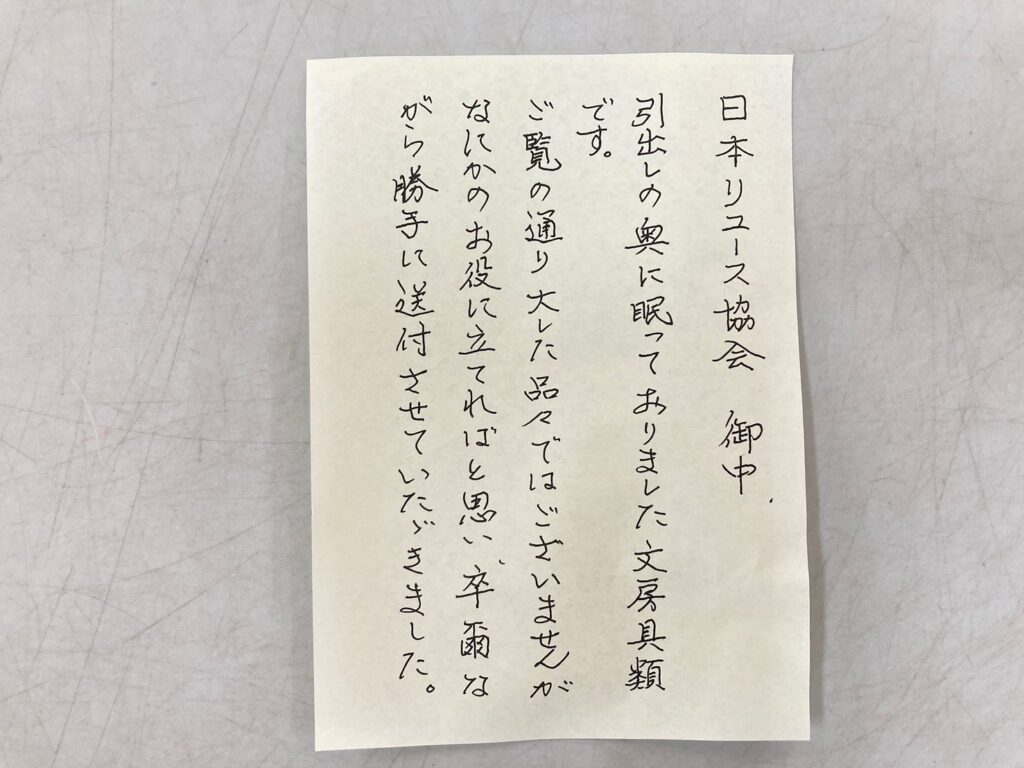 日本リユース協会 御中
引出しの奥に眠っておりました文房具類
です。
ご覧の通り大した品々ではございませんが
なにかのお役に立てればと思い、卒爾な
がら勝手に送付させていたゞきました。